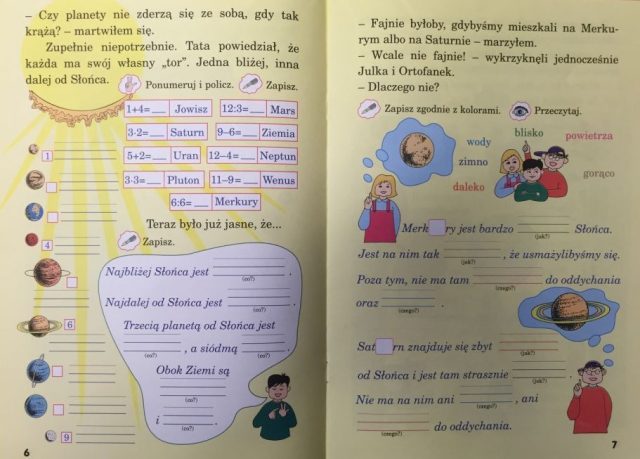 – Czy planety nie zderzą się ze sobą, gdy tak
krążą? – martwiłem się.
Zupełnie niepotrzebnie. Tata powiedział, że
każda ma swój własny „tor”. Jedna bliżej, inna
dalej od Słońca.
Ponumeruj i policz. Zapisz.
1+4=__ Jowisz 12:3=__ Mars
3·2=__ Saturn 9–6=__ Ziemia
5+2=__ Uran 12–4=__ Neptun
3·3=__ Pluton 11–9=__ Wenus
6:6=__ Merkury
1
4
6
9
Teraz było już jasne, że...
Zapisz.
Najbliżej Słońca jest .
(co?)
Najdalej od Słońca jest .
(co?)
Trzecią planetą od Słońca jest
, a siódmą .
(co?) (co?)
Obok Ziemi są
(co?)
i .
(co?)
6
– Fajnie byłoby, gdybyśmy mieszkali na Merku-
rym albo na Saturnie – marzyłem.
– Wcale nie fajnie! – wykrzyknęli jednocześnie
Julka i Ortofanek.
– Dlaczego nie?
Zapisz zgodnie z kolorami. Przeczytaj.
wody blisko powietrza
zimno gorąco
daleko
Merk ry jest bardzo Słońca.
(jak?)
Jest na nim tak , że usmażylibyśmy się.
(jak?)
Poza tym, nie ma tam do oddychania
(czego?)
oraz .
(czego?)
Sat rn znajduje się zbyt
(jak?)
od Słońca i jest tam strasznie .
(jak?)
Nie ma na nim ani , ani
(czego?)
do oddychania.
(czego?)
7